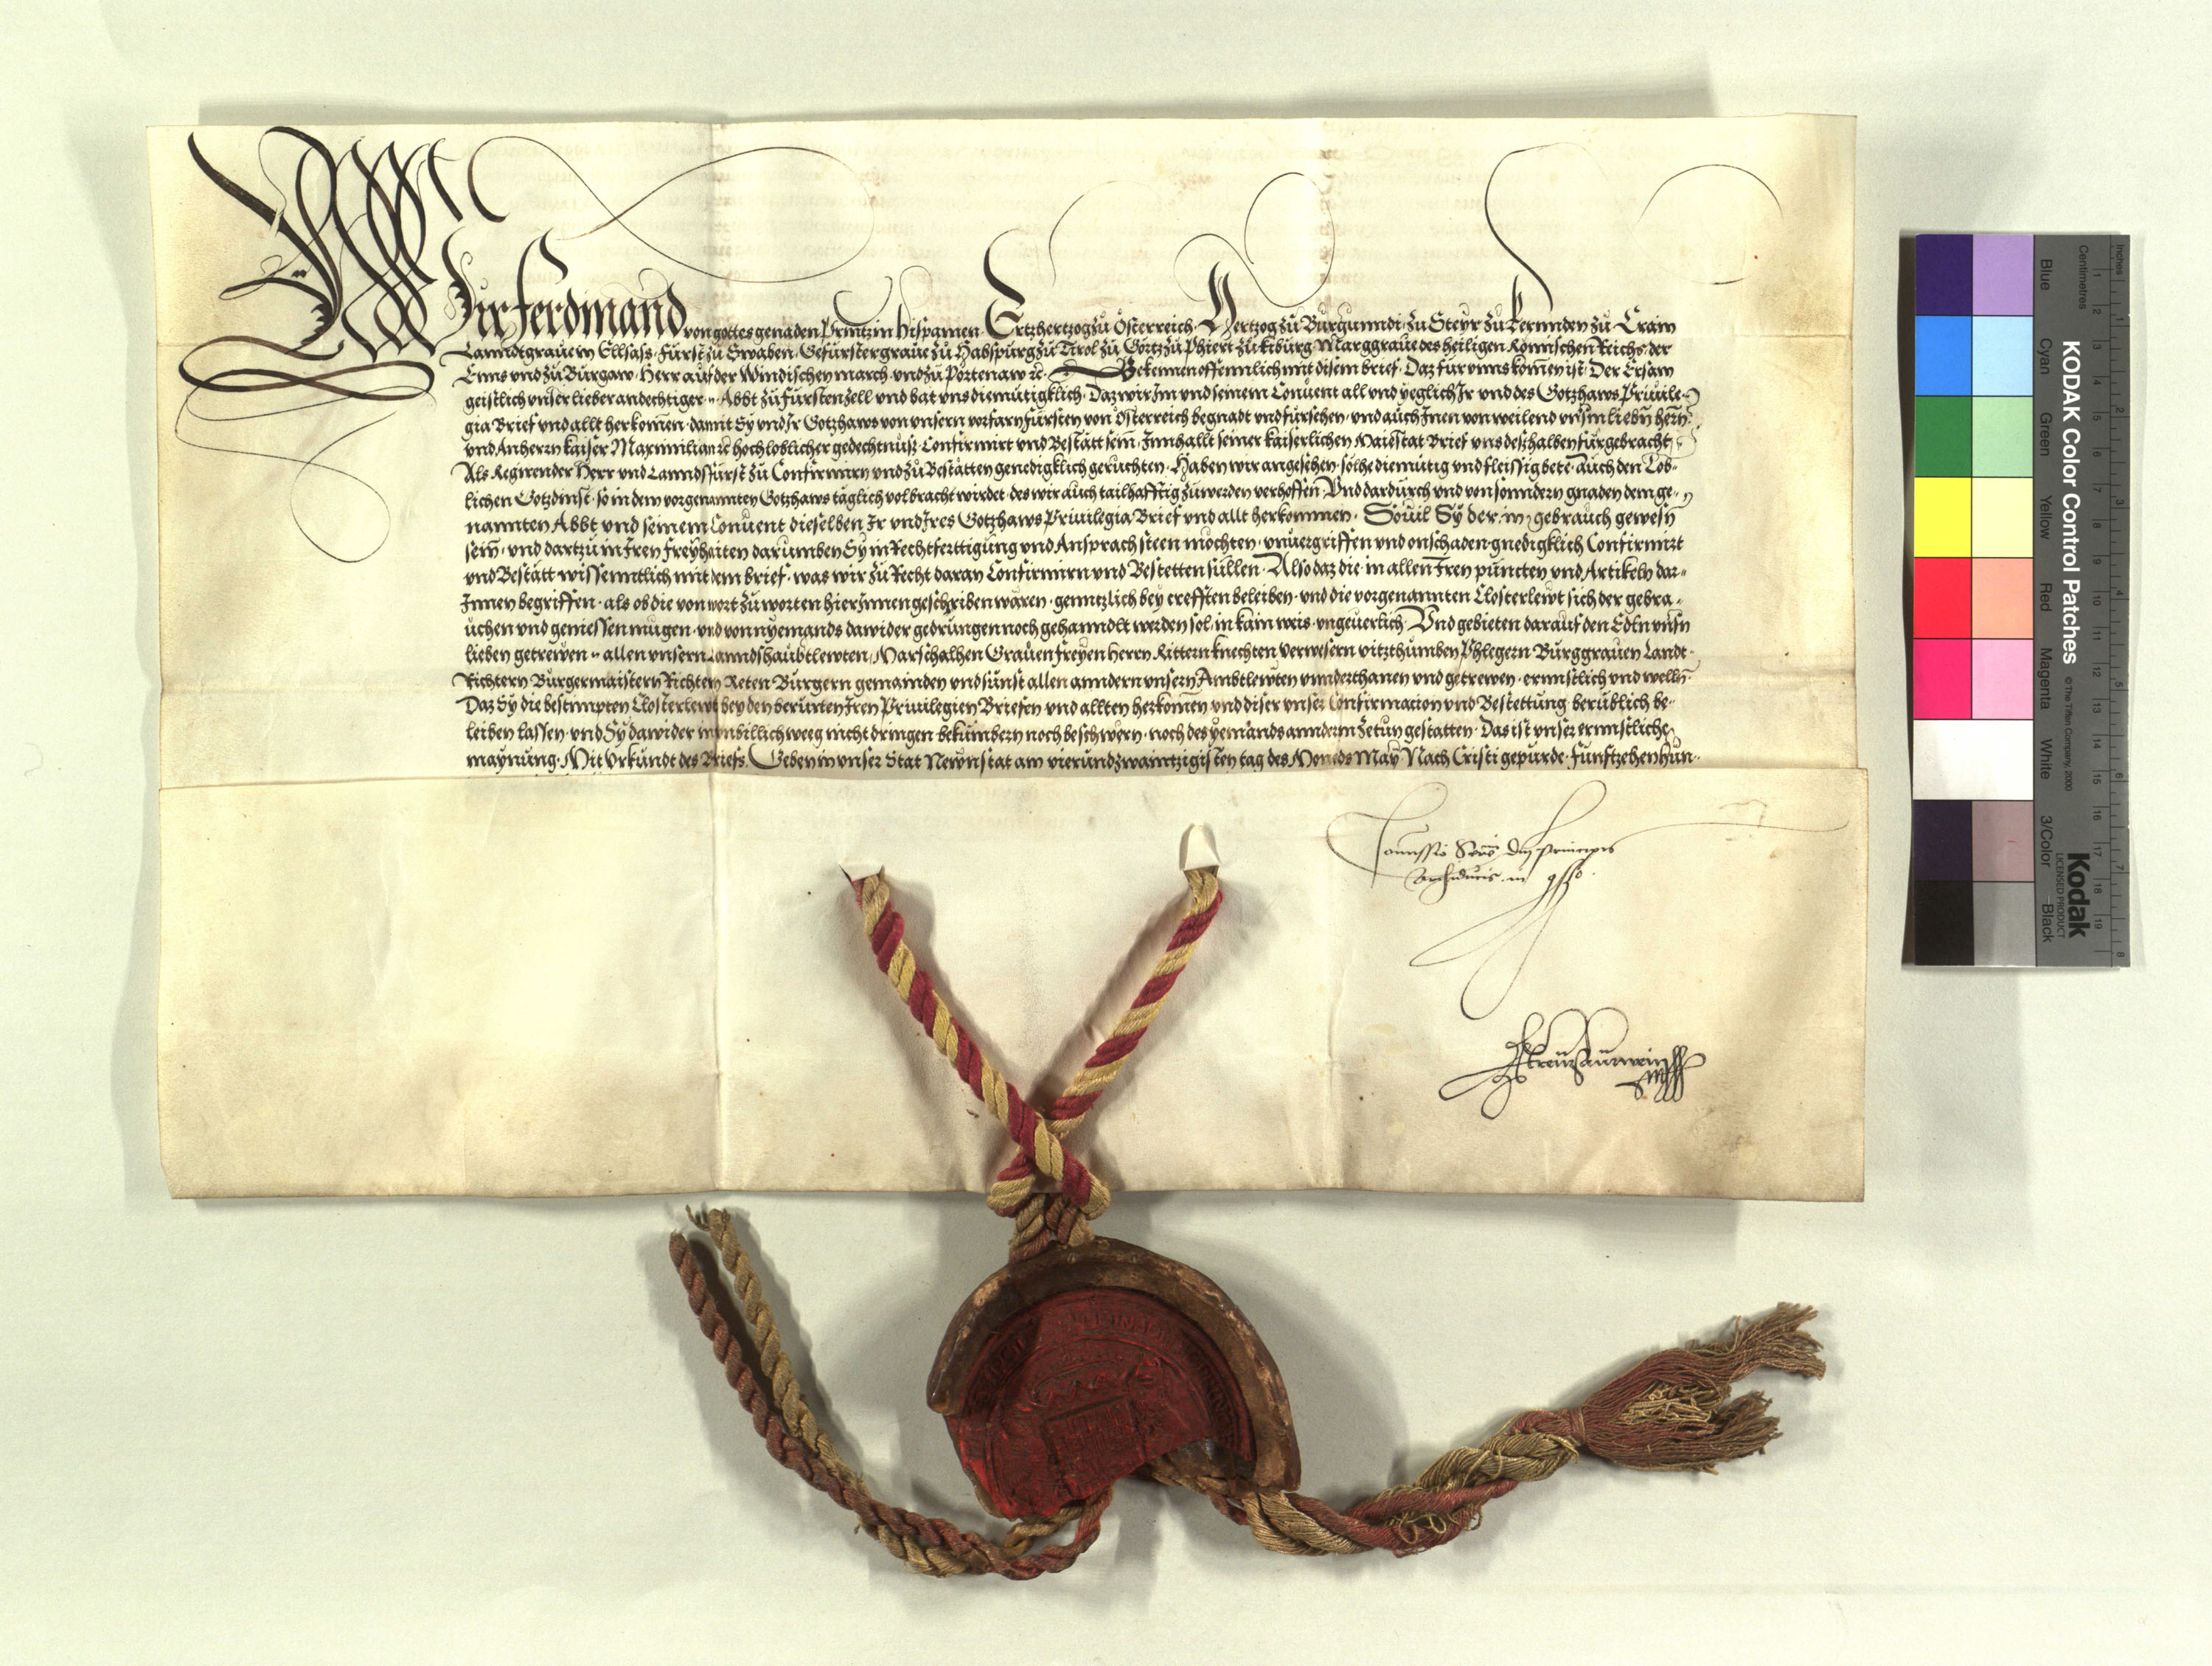 Wir Ferdinand von gottes genaden Printz in Hispanien Ertzhertzog zů Österreich Hertzog zů Burgunndi zu Steyr zů Kernnden zů Crain
Lanndtgraue in Ellsass Fürst zů Swaben Gefürster graue zů Habspurg zů Tirol zů Görtz zů Phiert zů Kiburg Marggraue des heiligen Römischen Reichs der
Enns vnd zů Burgaw Herr auf der Windischen march vnd zů Portenaw ꝛc Bekennen offennlich mit disem brief Daz für vnns komen ist Der Ersam
geistlich vnser lieber andechtiger .. Abbt zů Fürstenzell vnd bat vns diemütigklich Daz wir Im vnd seinem Conuent all vnd yeglich Ir vnd des Gotzhaws Priuile-
gia Brief vnd allt herkomen damit Sy vnd Ir Gotzhaws von vnsern vorfarn Fürsten von Österreich begnadt vnd fürsehen vnd auch Inen von weilend vnserm liebn herrn
vnd Anherrn kaiser Maximilian ꝛc hochloblicher gedechtnüss Confirmirt vnd Bestätt sein Innhallt seiner kaiserlichen Maiestat Brief vns deshalben fürgebracht
Als Regirender Herr vnd Lanndsfürst zů Confirmirn vnd zů Bestätten genedigklich geruchten Haben wir angesehen solhe diemütig vnd fleissig bete auch den Lob-
lichen Gotzdinst so in dem vorgenannten Gotzhaws täglich volbracht wirdet des wir auch tailhafftig zů werden verhoffen Vnd dardurch vnd von sonndern gnaden dem ge-
nannten Abbt vnd seinem Conuent dieselben Ir vnd Ires Gotzhaws Priuilegia Brief vnd allt herkommen Souil Sy der in gebrauch gewesn
sein vnd dartzu in Iren Freyhaiten darumben Sy in Rechtferttigung vnd Ansprach steen möchten vnuergriffen vnd onschaden gnedigklich Confirmirt
vnd Bestätt wissenntlich mit dem brief was wir zů Recht daran Confirmirn vnd Bestetten süllen Also daz die in allen Iren puncten vnd Artikeln dar-
Innen begriffen als ob die von wort zů worten hierInnen geschriben wären genntzlich bey crefften beleiben vnd die vorgenannten Closterlewt sich der gebra-
uchen vnd geniessen mugen vnd von nyemands dawider gedrungen noch gehanndlt werden sol in kain weis vngeuerlich Vnd gebieten darauf den Edln vnsn
lieben getrewen .. allen vnsern Lanndshaubtlewten Marschalhen Grauen Freyen Herrn Rittern knechten verwesern vitzthumben Phlegern Burggrauen Landt-
Richtern Burgermaistern Richtern Reten Burgern gemainden vnd sünst allen anndern vnsern Ambtlewten vnnderthanen vnd getrewen ernnstlich vnd welln
Daz Sy die bestimpten Closterlewt bey den berürten Iren Priuilegien Briefen vnd allten herkomen vnd diser vnser Confirmacion vnd Bestettung berüblich be-
leiben lassen vnd Sy dawider in vnbillich weeg nicht dringen bekümbern noch beschwern noch des yemands anndern zetun gestatten Das ist vnser ernnstliche
maynung Mit Vrkundt des Briefs Geben in vnser Stat Newnstat am vierundzwaintzigisten tag des Moneds May Nach Cristi gepurde Fünftzehenhun-
Comissio Sermi dni principis
Archiducis in
Treitzsaurwein
KODAK Color Control Patches
© The Tiffen Company, 2000
Kodak
LICENSED PRODUCT
Inches
Centimetres
Blue
Cyan
Green
Yellow
Red
Magenta
White
3/Color
Black
1 2 3 4 5 6 7 8
1 2 3 4 5 6 7 8 9 10 11 12 13 14 15 16 17 18 19